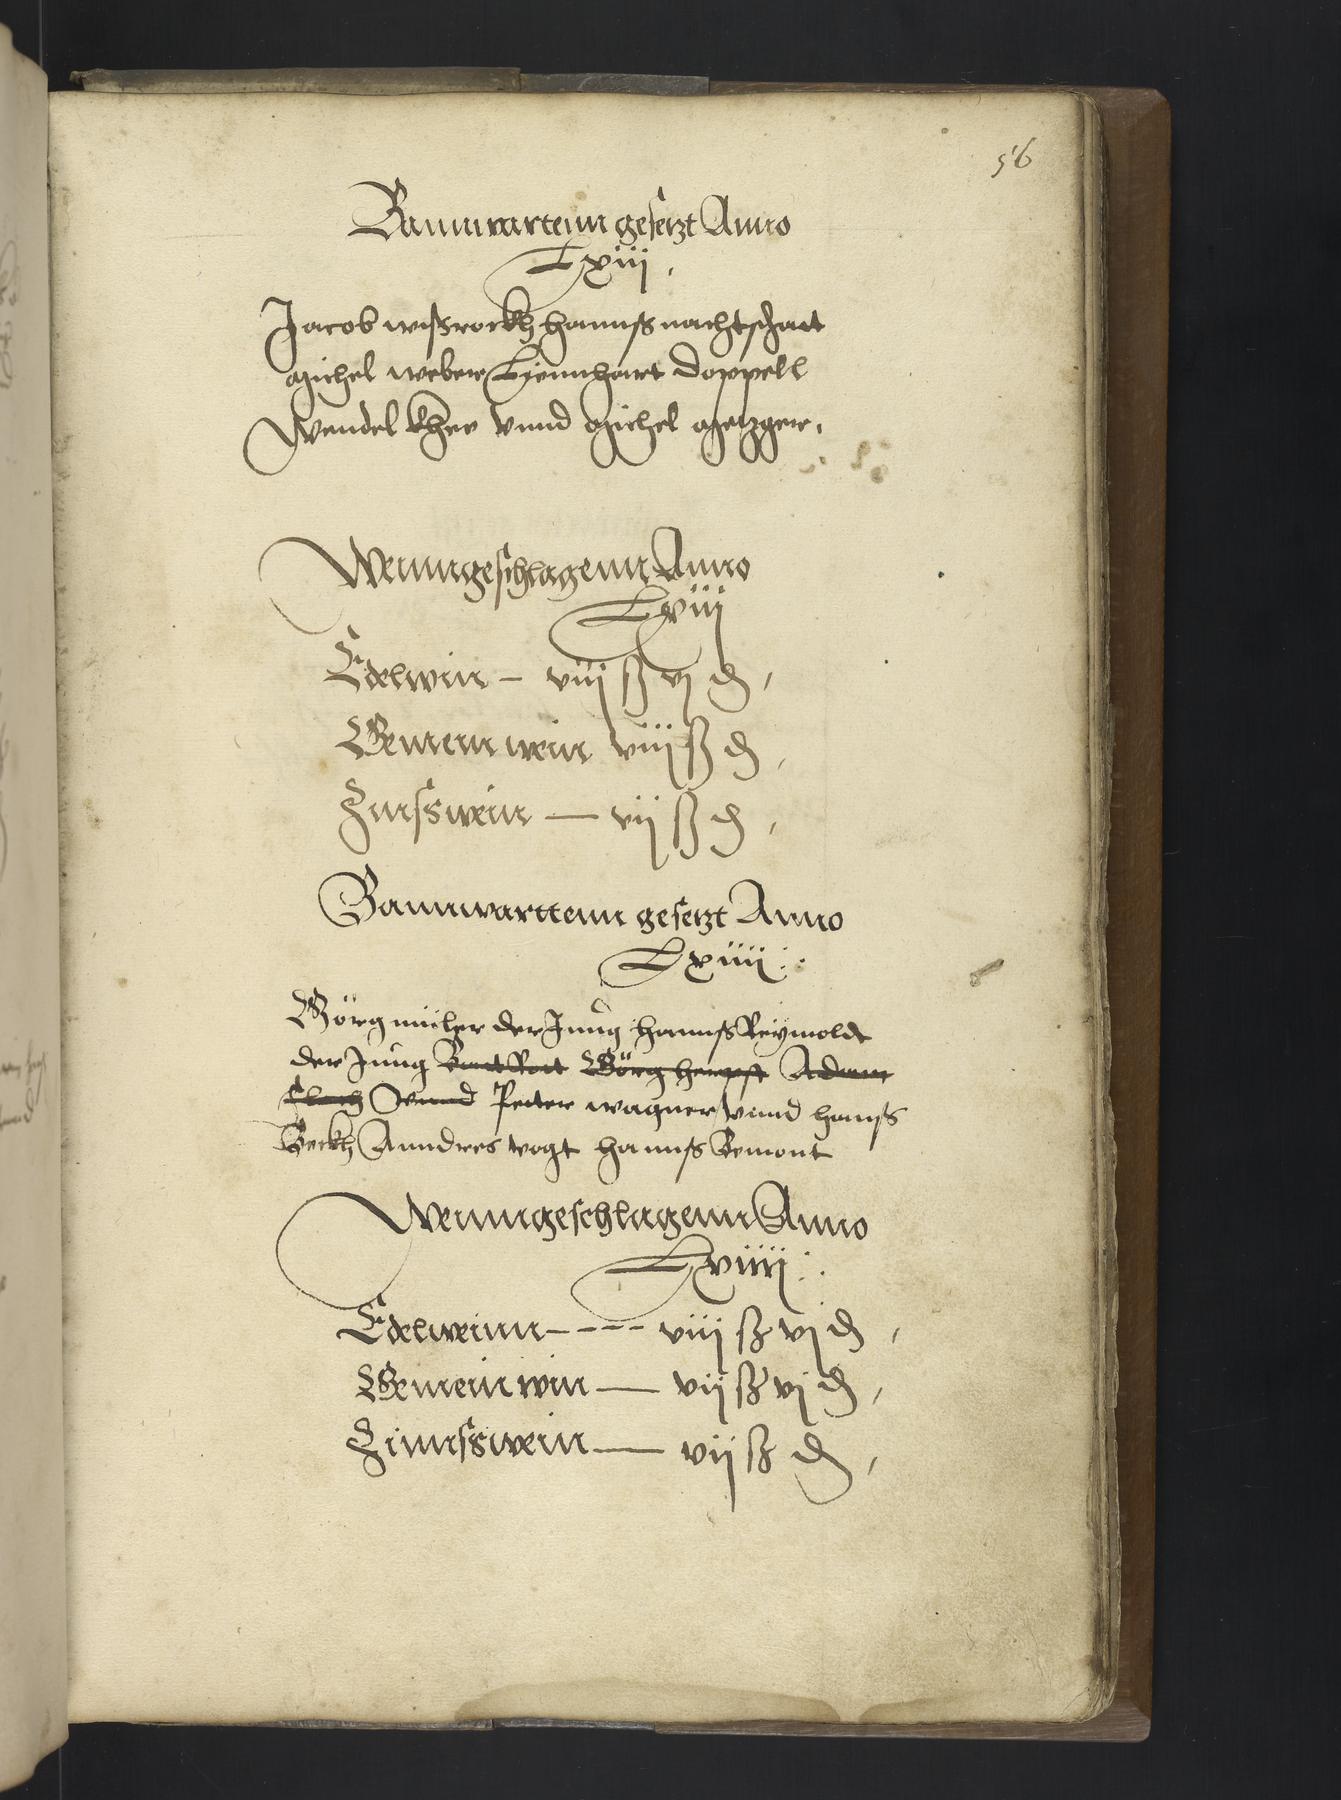 56
Bannwartenn gesetzt Anno
Lxiij.
Jacob wißrockh hannß nachtschatt
Michel weber Liennhart Doppell
Wendel Kher vnnd Michel Metzger.
Wein geschlagenn Anno
Lxiij
Edelwin – viij ß vj d,
Gemein wein viij ß d,
Zinsswein — vij ß d,
Bannwarttenn gesetzt Anno
Lxiiij
Görg müler der Jung hannß Reymoldt
der Jung Görg Adam
vnnd Peter wagner vnnd hanß
Beckh Anndres vogt hannß Bemont
Wein geschlagenn Anno
Lxiiij
Edelweinn - - - - viij ß vj d,
Gemein win — vij ß vj d,
Zinnsswein — vij ß d,